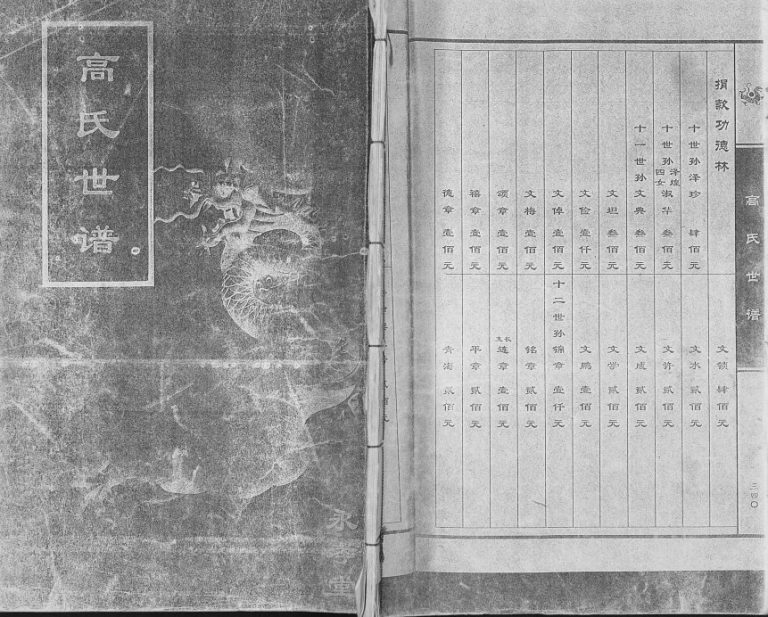 高氏世谱
永
堂
高氏世谱
三四〇
捐款功德林
十世孙泽珍 肆佰元
十世孙泽煌四女淑华 叁佰元
十一世孙文典 叁佰元
文坦 叁佰元
文俭 壹仟元
文倬 壹佰元
文梅 壹佰元
颂章 壹佰元
禧章 壹佰元
德章 壹佰元
文领 肆佰元
文水 贰佰元
文 贰佰元
文成 贰佰元
文学 贰佰元
文鹏 壹佰元
十二世孙锦章 壹仟元
铭章 贰佰元
琏章 壹佰元
平章 贰佰元
青海 贰佰元